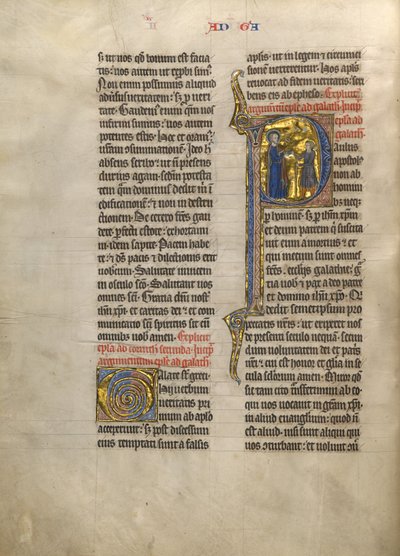 II AD GA
sʒ ut uos qđ bonum est facia
tis: nos autem ut reprobi simꝰ.
Non enim possumus aliquid
aduersus ueritatem: sʒ ꝓ ueri
tate. Gaudemꝰ enim qm̄ nos
infirmi sumus: uos autem
potentes estis. Hoc et oramꝰ
urām ꝯsummationem. Ideo h̄
absens scribo: ut n̄ presens
durius agam: scđm potesta
tem quā dominus dedit m̄ in
edificationē et non in destru
ctionem. De cetero frēs gau
dete ꝑfecti estote: exhortamini
idem sapite. Pacem habe
te: et dš pacis et dilectionis erit
uobiscum. Salutate inuicem
in osculo scō. Salutant uos
omnes scī. Gratia dnī nostri
ih̄u xp̄i et caritas dei et com
municatio scī spiritꝰ sit cū
omnibꝰ uobis amen. Explicit
epl̄a ad corinth̄ secunda. Incip̄
argumentū epl̄e ad galath̄.
Galathe st̄ greci.
Hii uerbum
ueritatis pri
mum ab aplō
acceperunt: sʒ post discessum
eius temptati sunt a falsis
aplīs. ut in legem et circumci
sionē uerterentur. Hos apl̄s
reuocat ad fidem ueritatis: scri
bens eis ab epheso. Explicit
argumentū epl̄e ad galath̄. Incip̄
epl̄a ad
galath̄.
Paulus
apostolꝰ
non ab
homini
bꝰ neqʒ
ꝑ hominē. sʒ ꝑ ih̄m xp̄m
et deum patrem qui suscita
uit eum a mortuis et qui
mecum sunt omnes
frēs. ecclīis galathie: gra
tia uob̄ et pax a deo patre
et domino ih̄u xp̄o. qui
dedit semetipsum pro
peccatis nr̄is. ut eriperet nos
de presenti seculo nequā. scđm
uoluntatem dei et patris
nr̄i. cui est honor et gl̄ia in se
cula seculorum amen. Miror qđ
sic tam cito transferimini ab eo
qui uos uocauit in grām xp̄i.
in aliud euangelium: quod n̄
est aliud. nisi sunt aliqui qui
uos ꝯturbant: et uolunt ꝯū